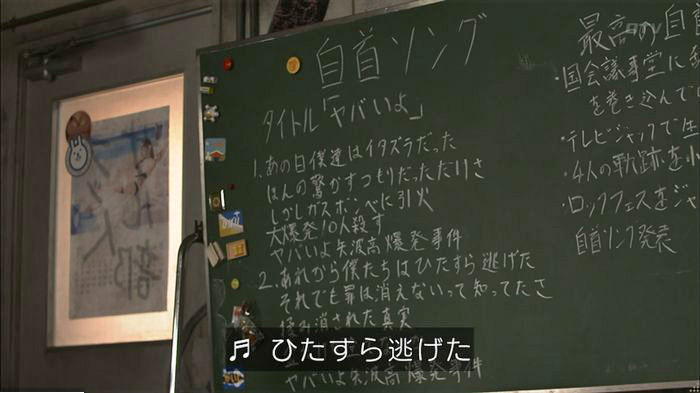 自首ソング
タイトル「ヤバいよ」
1.あの日僕達はイタズラだった
ほんの驚かすつもりだっただけさ
しかしガスボンベに引火
大爆発10人殺す
ヤバいよ矢波高爆発事件
2.あれから僕たちはひたすら逃げた
それでも罪は消えないって知ってたさ
揉み消された真実
ヤバいよ矢波高爆発事件
最高の自首
・国会議事堂に
を巻き込んで
・テレビジャックで生
・4人の軌跡を
・ロックフェスをジャ
自首ソング発表
部
♬ ひたすら逃げた